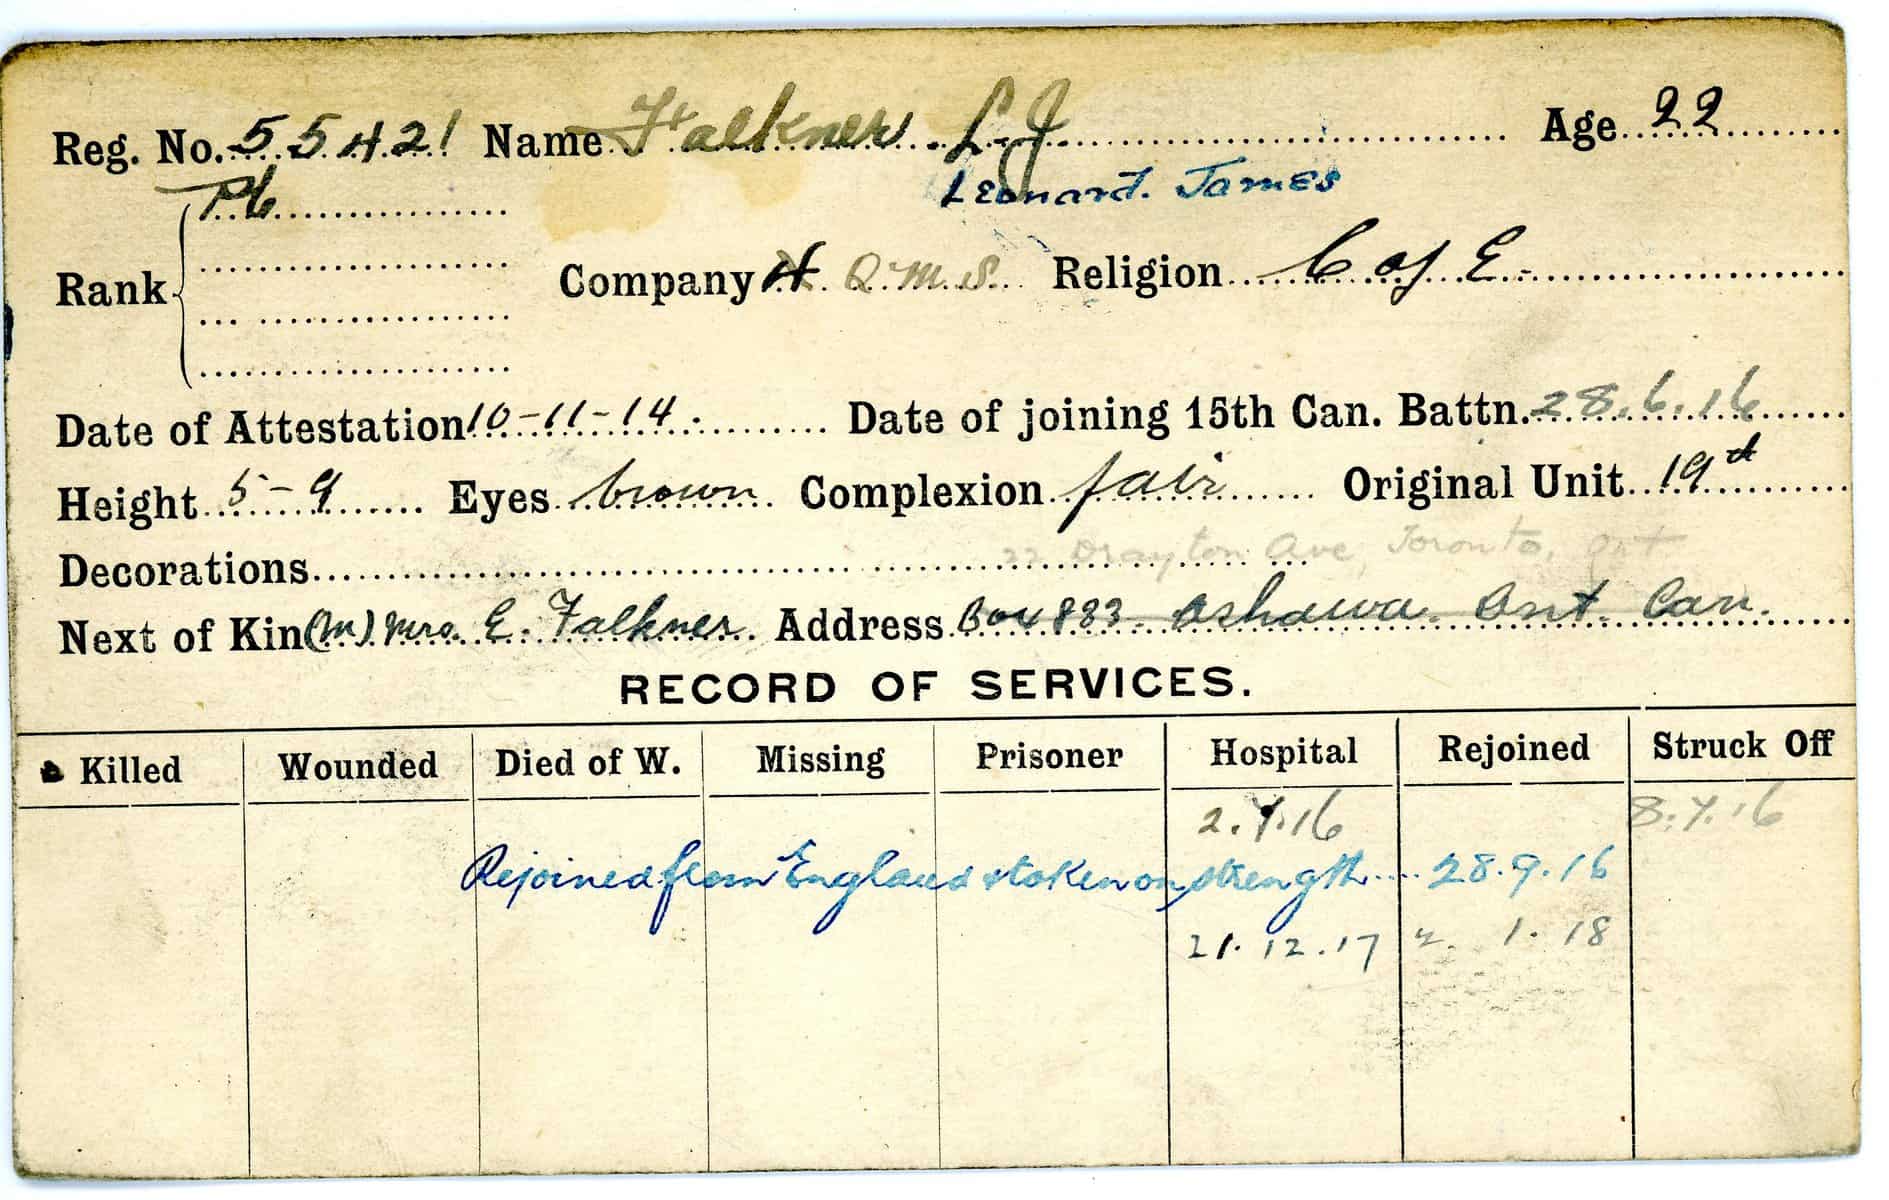 Reg. No. 55421 Name Falkner L J Age 22
Leonard. James
Pte
Rank Company Q.M.S. Religion C of E.
Date of Attestation 10-11-14. Date of joining 15th Can. Battn. 28.6.16
Height 5-9 Eyes brown Complexion fair Original Unit 19th
22 Drayton Ave, Toronto, Ont
Decorations
Next of Kin (M) Mrs. E. Falkner. Address Box 883 Oshawa. Ont. Can.
RECORD OF SERVICES.
Killed Wounded Died of W. Missing Prisoner Hospital Rejoined Struck Off
2.7.16 8.7.16
Rejoined from England & taken on strength 28.9.16
21.12.17 1.18